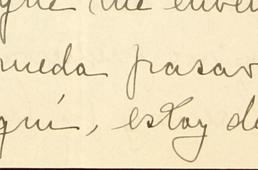 que me enve
pueda pasar
quí, estoy de